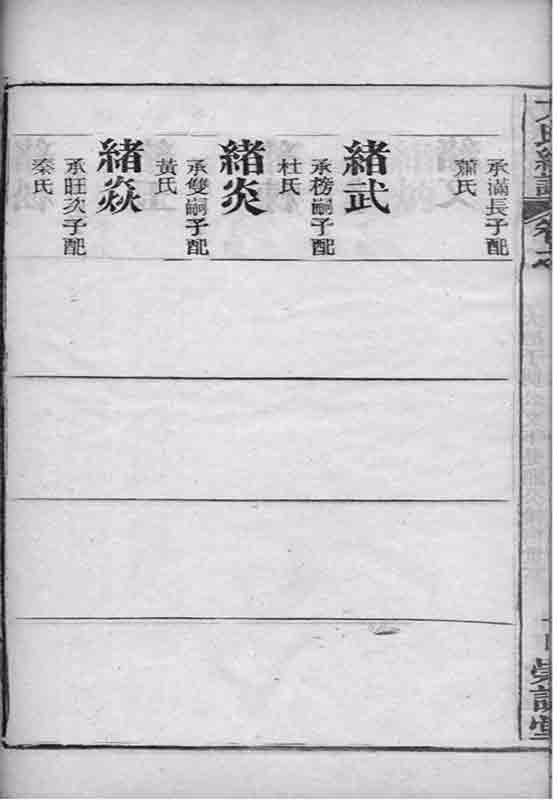 承滿長子配
蕭氏
緒武
承榜嗣子配
杜氏
緒炎
承雙嗣子配
黃氏
緒焱
承旺次子配
秦氏